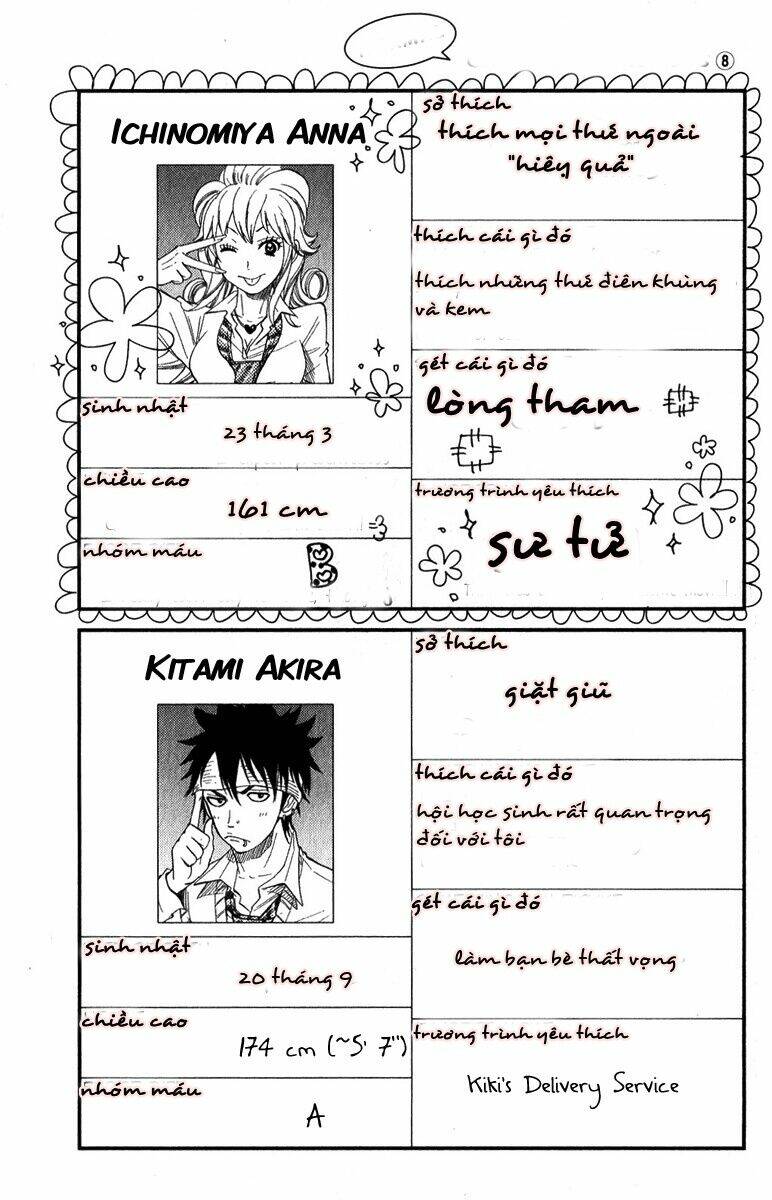 8
ICHINOMIYA ANNA
sinh nhật
23 tháng 3
chiều cao
161 cm
nhóm máu
B
sở thích
thích mọi thứ ngoài
"hiêy quả"
thích cái gì đó
thích những thứ điên khùng
và kem
gét cái gì đó
lòng tham
trương trình yêu thích
sư tử
KITAMI AKIRA
sinh nhật
20 tháng 9
chiều cao
174 cm (~5' 7")
nhóm máu
A
sở thích
giặt giũ
thích cái gì đó
hội học sinh rất quan trọng
đối với tôi
gét cái gì đó
làm bạn bè thất vọng
trương trình yêu thích
Kiki's Delivery Service